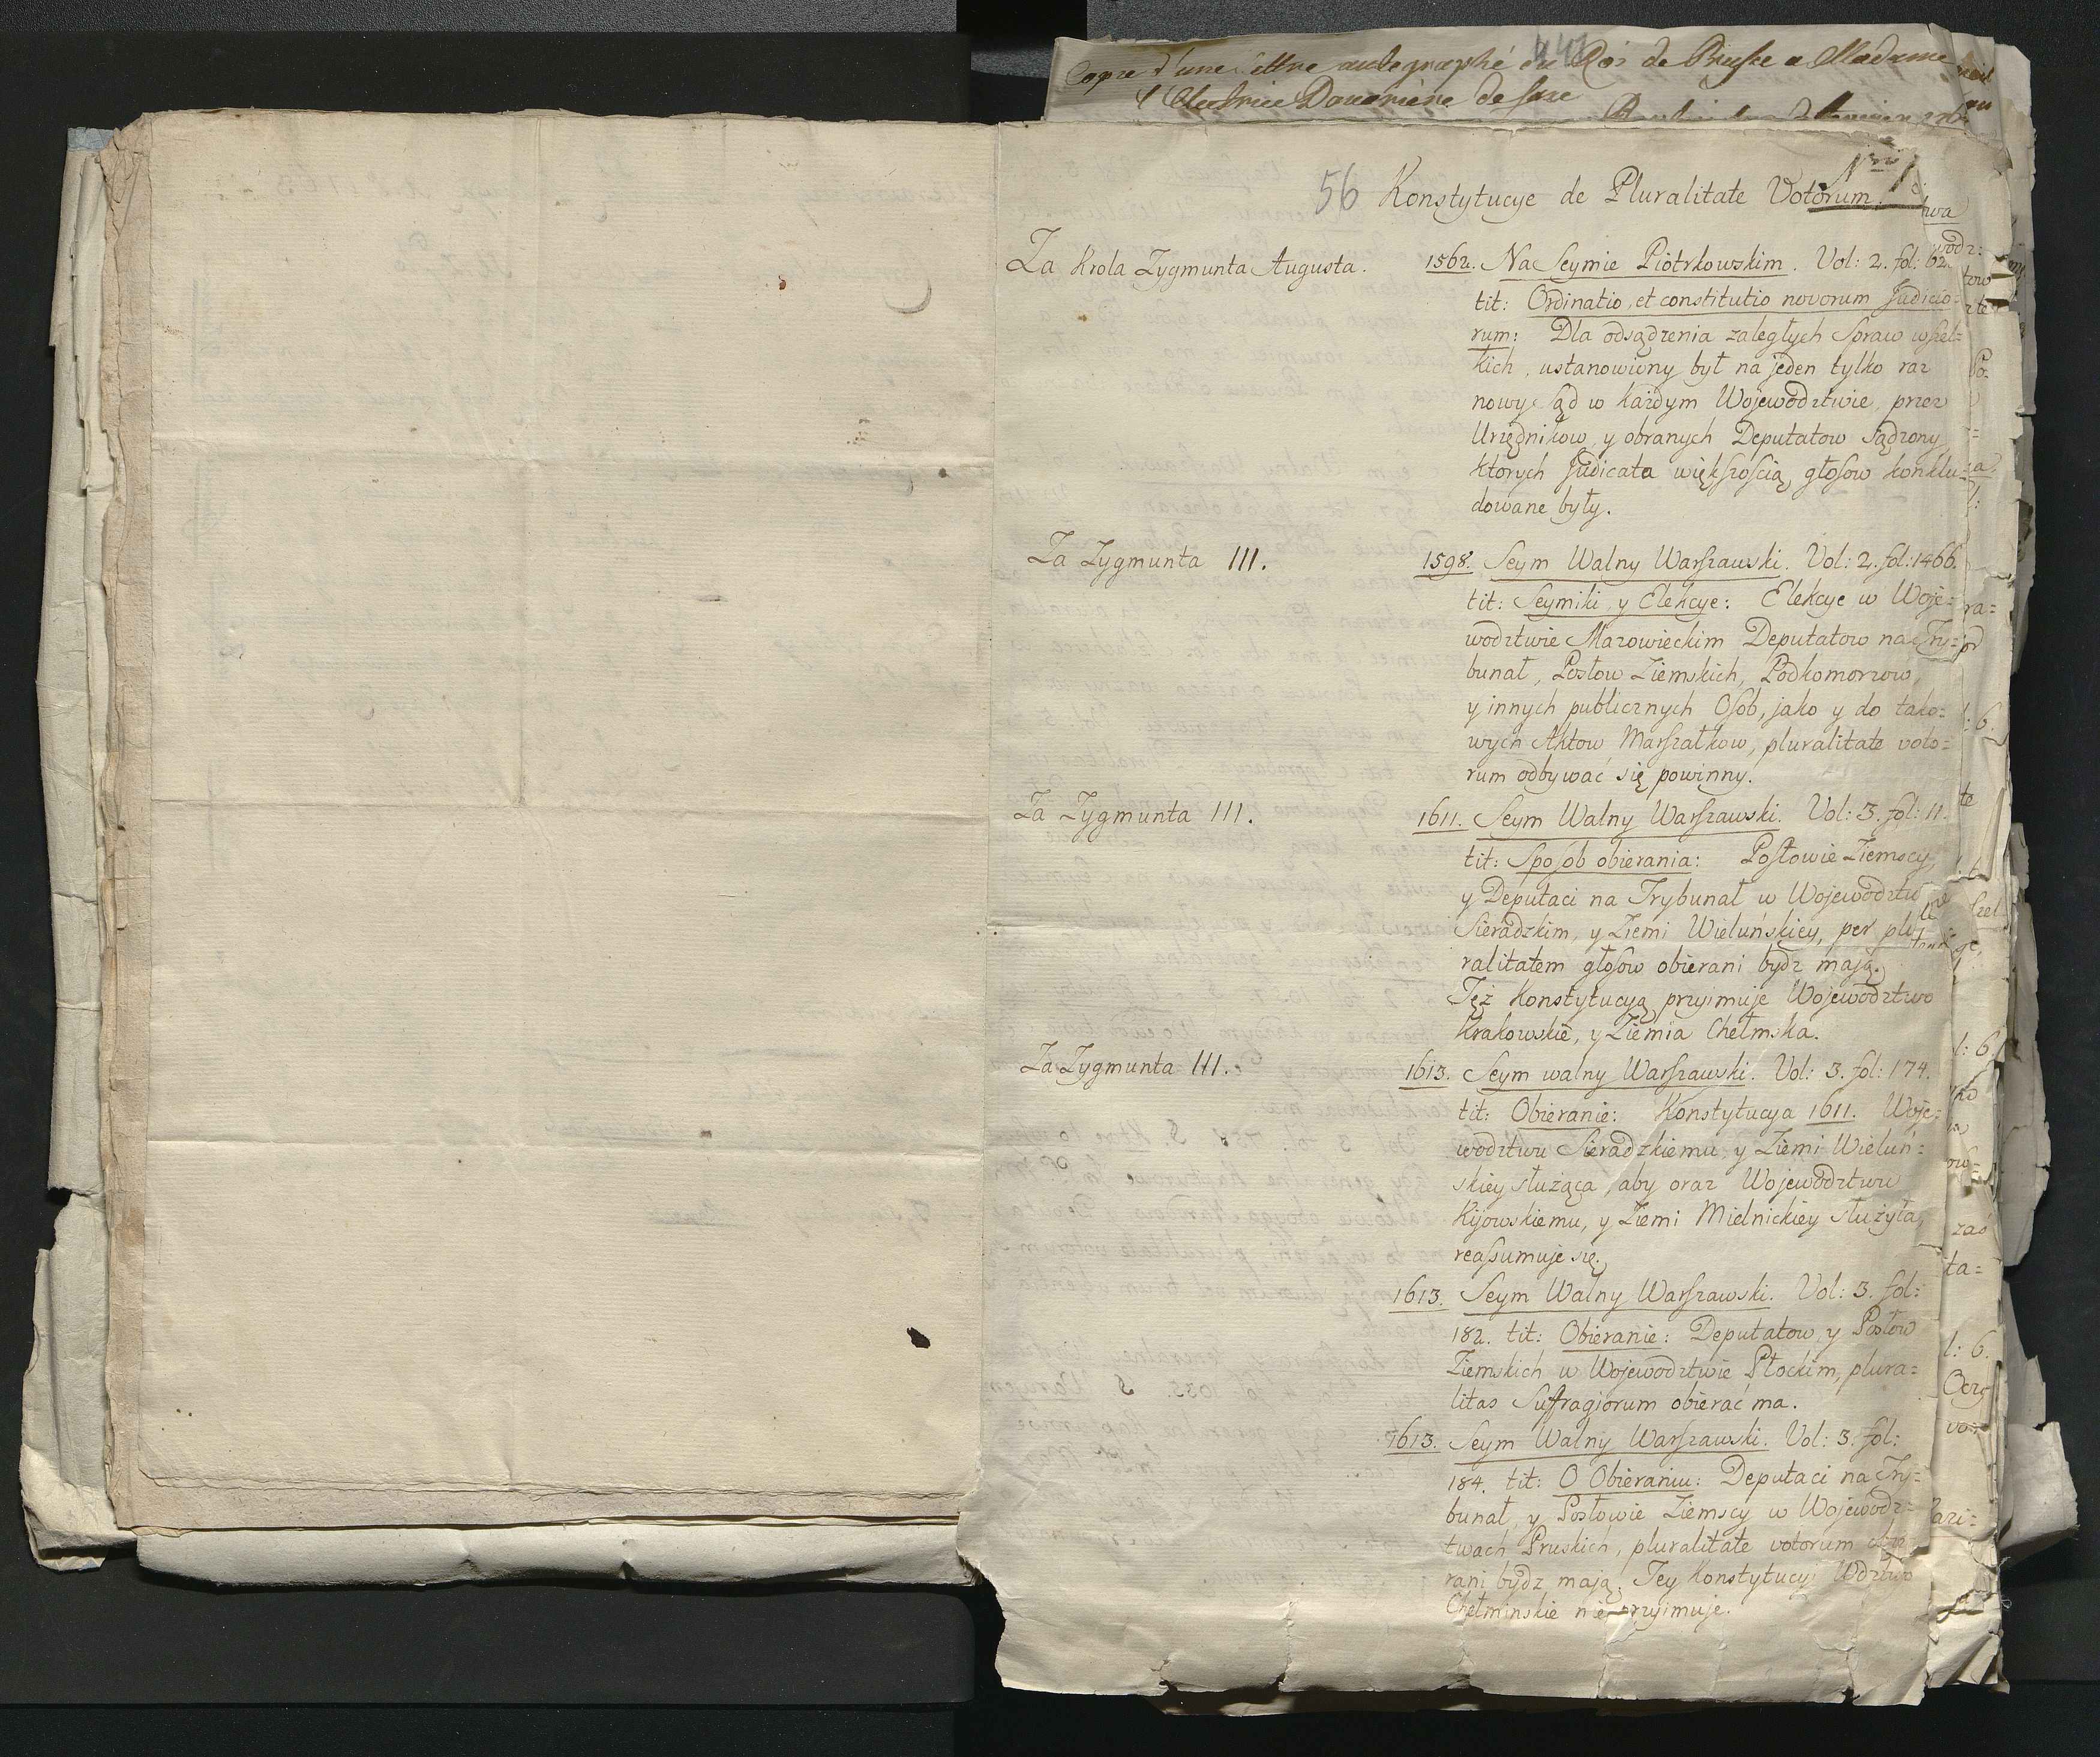 Copie d'une lettre autographé du Roi de Prusse a Madame
l'Electrice Douariere de Saxe
56 Konstytucye de Pluralitate Votorum.
Za Krola Zygmunta Augusta.
1562. Na Seymie Piotrkowskim. Vol: 2. fol: 62
tit: Ordinatio, et constitutio novorum Judicio=
rum: Dla odsądzenia zaległych Spraw wszel=
kich, ustanowiony był na jeden tylko raz
nowy Sąd w każdym Wojewodztwie, przez
Urzędnikow, y obranych Deputatow sądzony
ktorych Judicata większością głosow konklu=
dowane były.
Za Zygmunta III.
1598. Seym Walny Warszawski. Vol: 2. fol: 1466.
tit: Seymiki y Elekcye: Elekcye w Woje=
wodztwie Mazowieckim Deputatow na Try=
bunał, Posłow Ziemskich, Podkomorzow,
y innych publicznych Osob, jako y do tako=
wych Aktow Marszałkow, pluralitate voto=
rum odbywać się powinny.
Za Zygmunta III.
1611. Seym Walny Warszawski. Vol: 3. fol: 11.
tit: Sposob obierania: Posłowie Ziemscy,
y Deputaci na Trybunał w Wojewodztw
Sieradzkim, y Ziemi Wieluńskiey, per plu
ralitatem głosow obierani bydz mają.
Tęż Konstytucyą przyimuje Wojewodztwo
Krakowskie, y Ziemia Chełmska.
Za Zygmunta III.
1613. Seym walny Warszawski. Vol: 3. fol: 174.
tit: Obieranie: Konstytucya 1611. Woje=
wodztwu Sieradzkiemu, y Ziemi Wieluń=
skiey służąca, aby oraz Wojewodztwu
Kijowskiemu, y Ziemi Mielnickiey służyła,
reassumuje się.
1613. Seym Walny Warszawski. Vol: 3. fol:
182. tit: Obieranie: Deputatow, y Posłow
Ziemskich w Wojewodztwie Płockim, plura=
litas Suffragiorum obierać ma.
1613. Seym Walny Warszawski. Vol: 3. fol:
184. tit: O Obieraniu: Deputaci na Try=
bunał, y Posłowie Ziemscy w Wojewodz=
twach Pruskich, pluralitate votorum
rani bydz mają. Tey Konstytucyi Wdztwo
Chełminskie nie przyimuje.